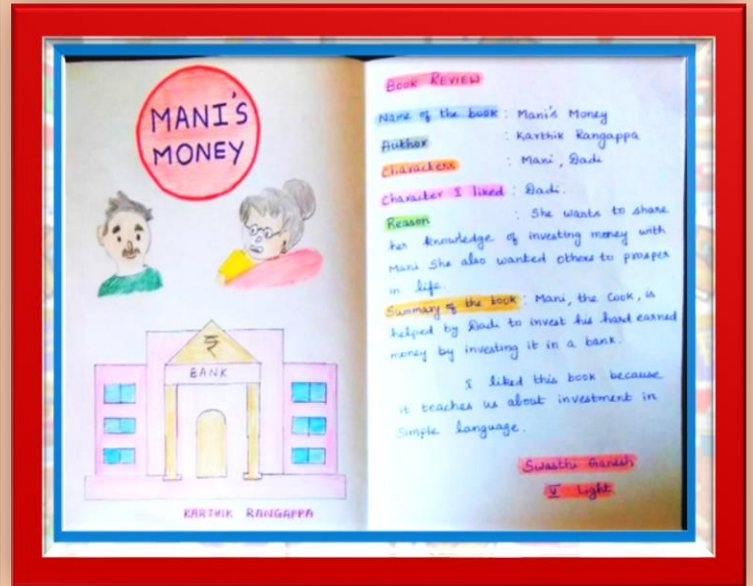 MANI'S
MONEY
₹
BANK
KARTHIK RANGAPPA
BOOK REVIEW
Name of the book : Mani's Money
Author : Karthik Rangappa
Characters : Mani, Dadi
Character I liked : Dadi.
Reason : She wants to share
her knowledge of investing money with
Mani. She also wanted others to prosper
in life.
Summary of the book : Mani, the Cook, is
helped by Dadi to invest his hard earned
money by investing it in a bank.
I liked this book because
it teaches us about investment in
Simple language.
Swasthi Ganesh
V Light